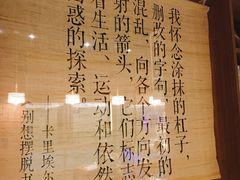 我怀念涂抹的杠子，
删改的字句，最初的
混乱，向各个方向发
射的箭头，它们标志
着生活、运动和依然
困惑的探索。
——卡里埃尔
别想摆脱书